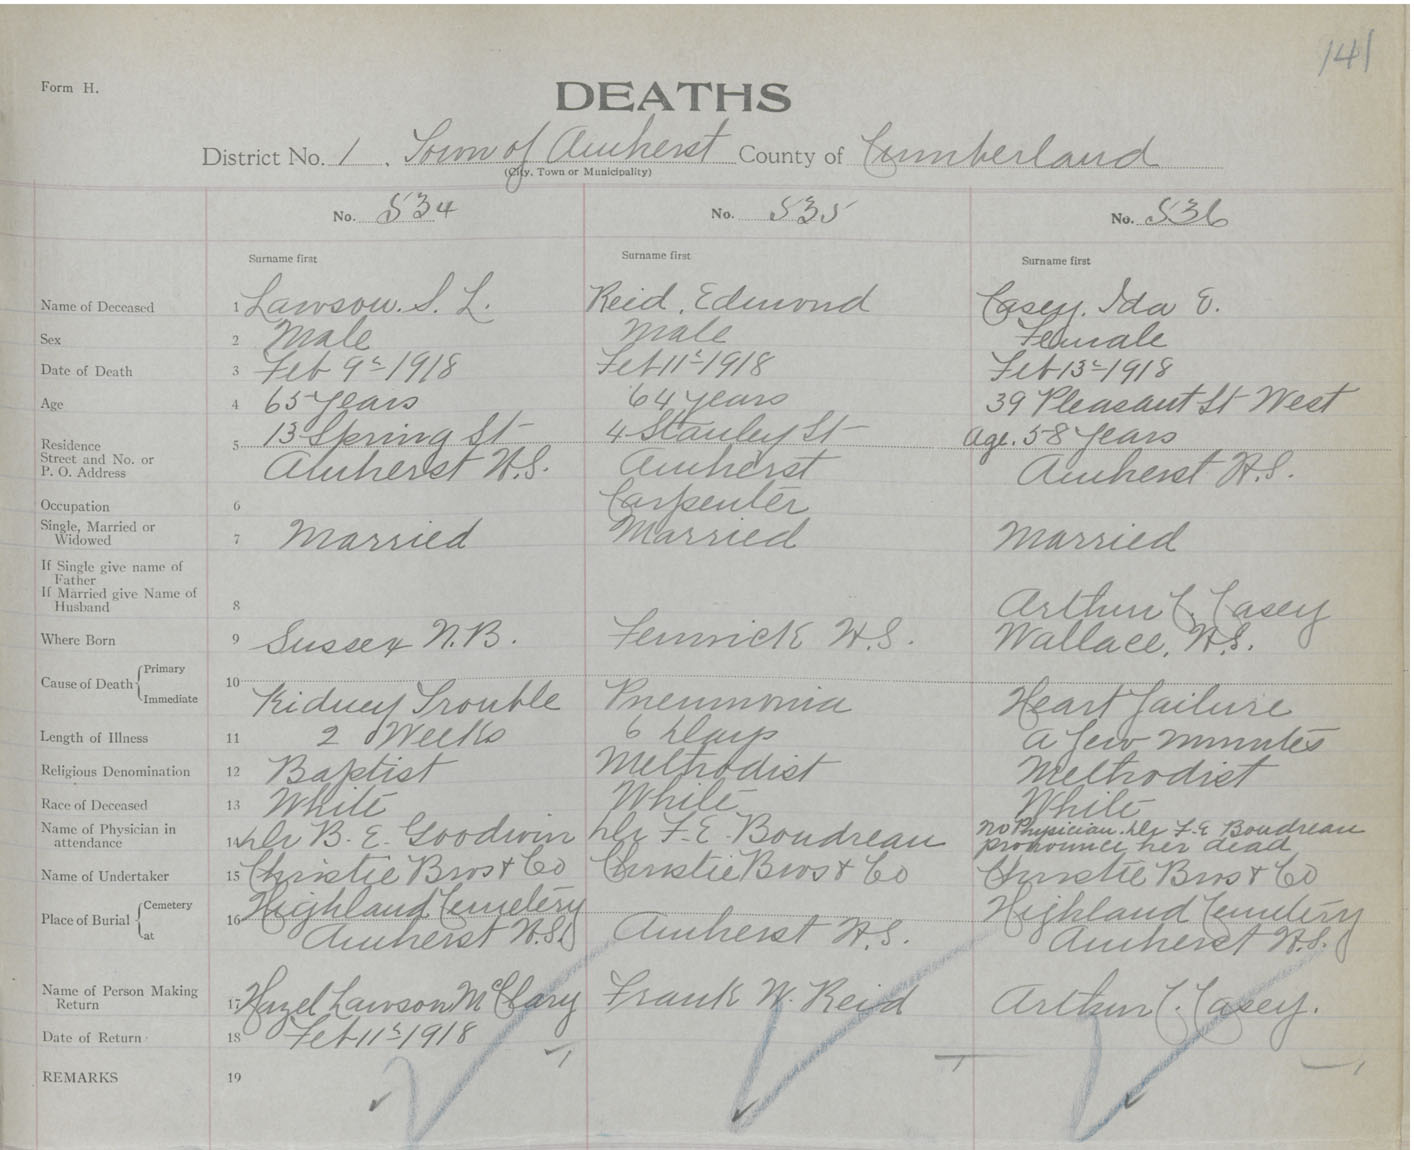 141
Form H.
DEATHS
District No. 1. Town of Amherst County of Cumberland
(City, Town or Municipality)
No. 534 No. 535 No. 536
Surname first Surname first Surname first
Name of Deceased 1 Lawson. S. L. Reid, Edmond Casey, Ida E.
Sex 2 Male Male Female
Date of Death 3 Feb 9th 1918 Feb 11th 1918 Feb 13th 1918
Age 4 65 years 64 years 39 Pleasant St West
Residence 5 13 Spring St 4 Stanley St Age. 58 years
Street and No. or
P. O. Address Amherst N.S. Amherst Amherst N.S.
Occupation 6 Carpenter
Single, Married or
Widowed 7 Married Married Married
If Single give name of
Father
If Married give Name of
Husband 8 Arthur C. Casey
Where Born 9 Sussex N.B. Fenwick N.S. Wallace, N.S.
Cause of Death Primary 10
Immediate Kidney Trouble Pneumonia Heart failure
Length of Illness 11 2 Weeks 6 Days a few minutes
Religious Denomination 12 Baptist Methodist Methodist
Race of Deceased 13 White White White
Name of Physician in
attendance 14 Dr B. E. Goodwin Dr F. E. Boudreau no Physician. Dr F. E Boudreau
pronounce her dead
Name of Undertaker 15 Christie Bros & Co Christie Bros & Co Christie Bros & Co
Place of Burial Cemetery 16 Highland Cemetery Highland Cemetery
at Amherst N.S. Amherst N.S. Amherst N.S.
Name of Person Making
Return 17 Hazel Lawson McClary Frank W. Reid Arthur C. Casey.
Date of Return 18 Feb 11th 1918
REMARKS 19